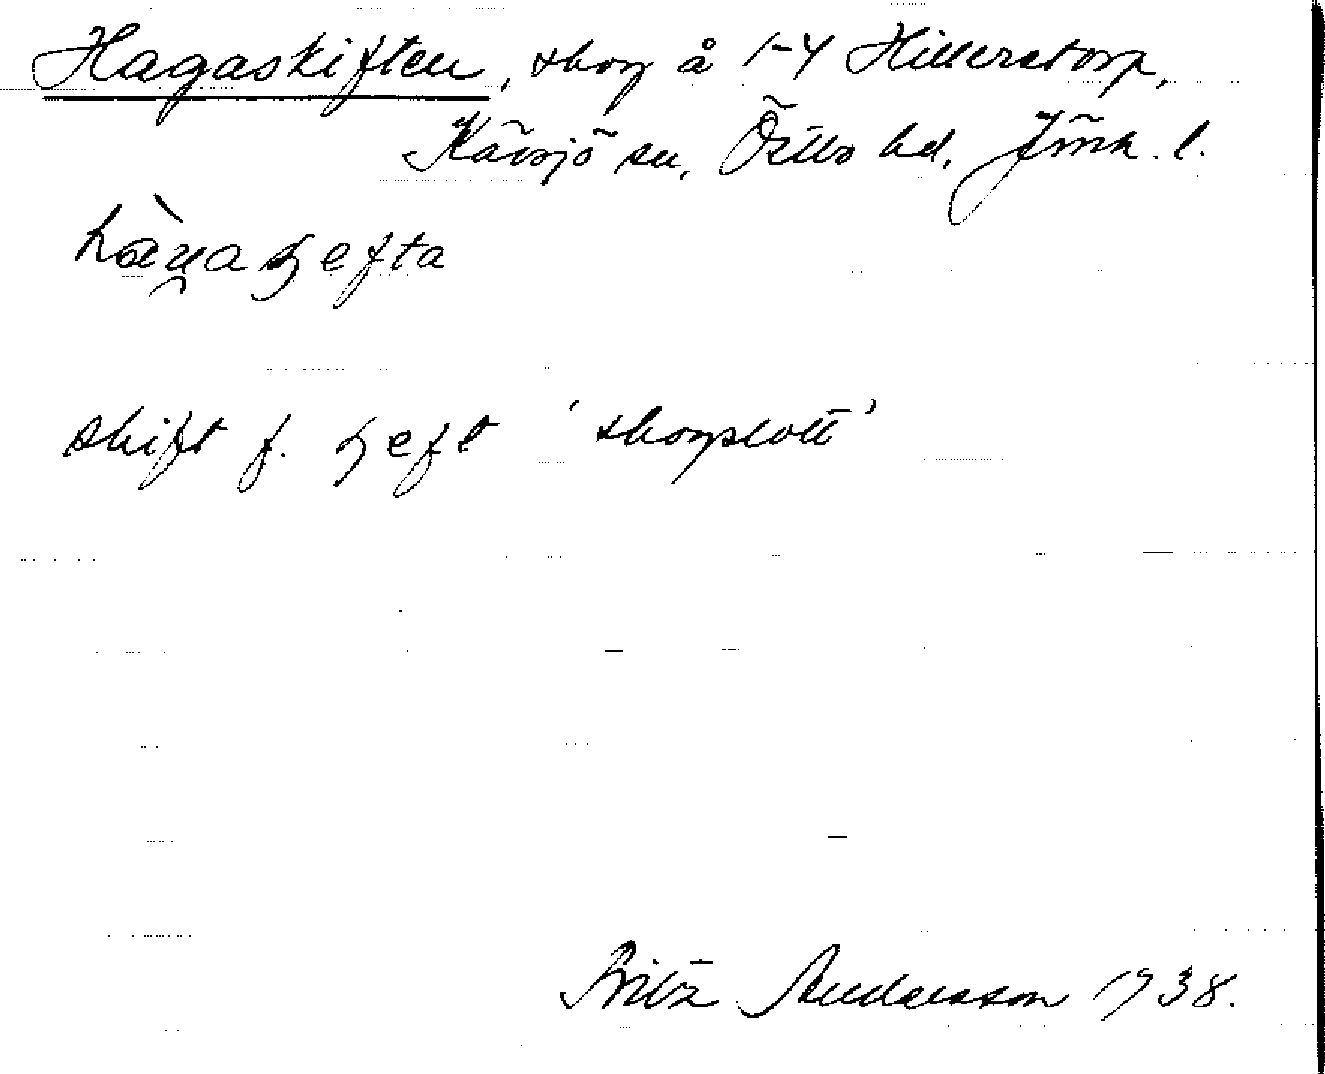 Hagaskiften, skog å 1-4 Hillerstorp,
Kävsjö sn, Östbo hd, Jönk. l.
skift f. ʒeft 'skogslott'
Fritz Andersson 1938.